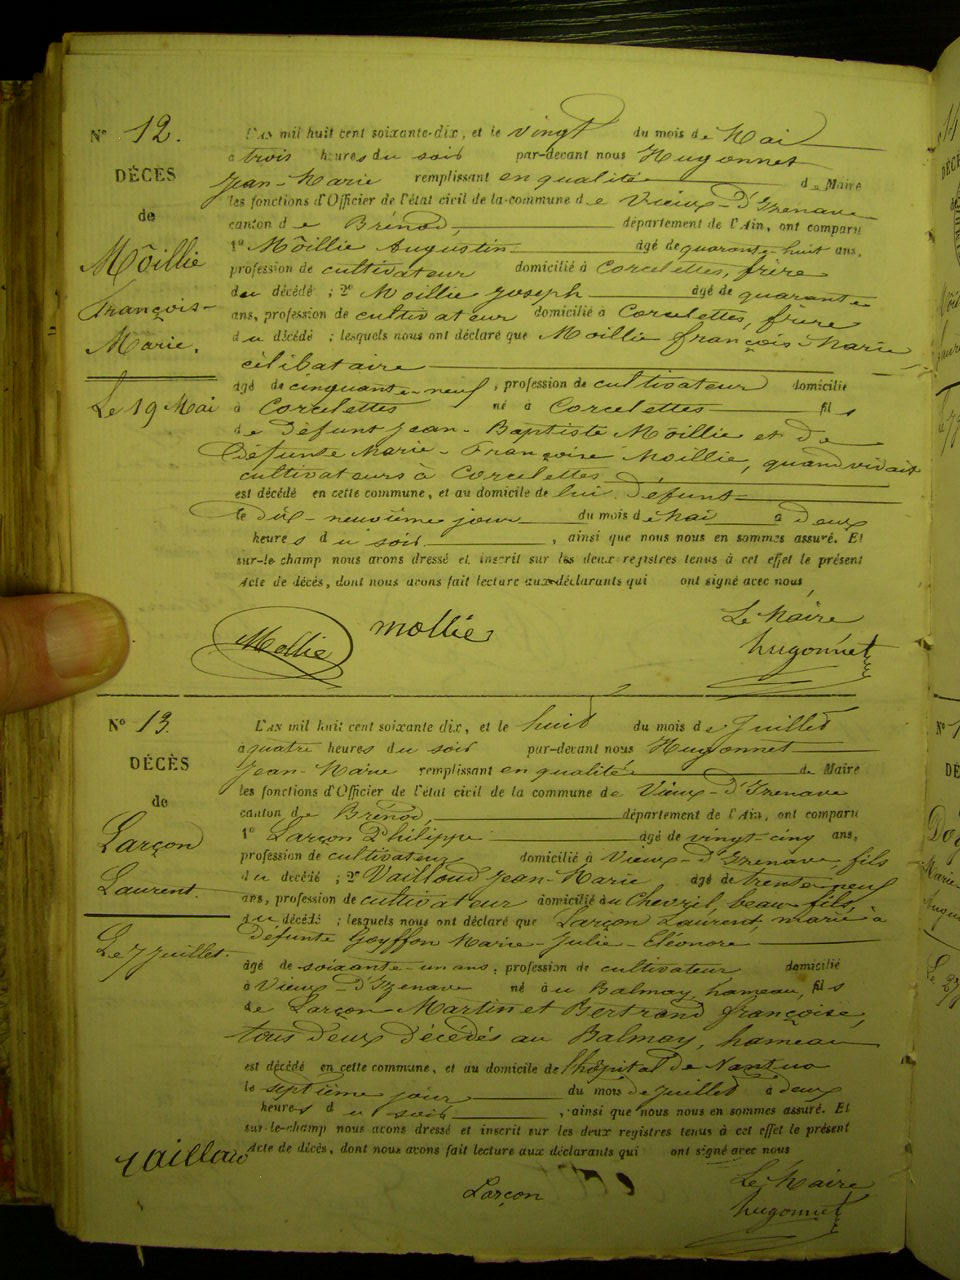 N° 12.
DÉCÈS
de
Mõillie
François-
Marie.
Le 19 Mai
L'AN mil huit cent soixante-dix, et le vingt du mois de Mai
à trois heures du soir par-devant nous Hugonnet
Jean-Marie remplissant en qualité de Maire
les fonctions d'Officier de l'état civil de la commune de Vieux-d'Izenave
canton de Brénod, département de l'Ain, ont comparu
1° Mõillie Augustin âgé de quarante-huit ans,
profession de cultivateur domicilié à Corcelettes, frère
du décédé ; 2° Moillie Joseph âgé de quarante
ans, profession de cultivateur domicilié à Corcelettes, frère
du décédé ; lesquels nous ont déclaré que Moillie françois-Marie
célibataire
âgé de cinquante-neuf, profession de cultivateur domicilié
à Corcelettes né à Corcelettes fils
de Défunt Jean-Baptiste Mõillie et de
Défunte Marie-Françoise Moillie, quand vivait
cultivateurs à Corcelettes
est décédé en cette commune, et au domicile de lui Défunt
le dix-neuvième jour du mois de Mai à Deux
heures du soir, ainsi que nous nous en sommes assuré. Et
sur-le-champ nous avons dressé et inscrit sur les deux registres tenus à cet effet le présent
Acte de décès, dont nous avons fait lecture aux déclarants qui ont signé avec nous
Le Maire
Mollie mollie hugonnet
N° 13.
DÉCÈS
de
Larçon
Laurent
Le 7 Juillet.
L'AN mil huit cent soixante dix, et le huit du mois de Juillet
à quatre heures du soir par-devant nous Hugonnet
Jean-Marie remplissant en qualité de Maire
les fonctions d'Officier de l'état civil de la commune de Vieux-d'Izenave
canton de Brénod, département de l'Ain, ont comparu
1° Larçon Philippe âgé de vingt-cinq ans,
profession de cultivateur domicilié à Vieux-d'Izenave fils
du décédé ; 2° Vailloud Jean-Marie âgé de trente-neuf
ans, profession de cultivateur domicilié au Chevril, beau-fils,
du décédé ; lesquels nous ont déclaré que Larçon Laurent, marié à
défunte Goyffon Marie-Julie-Eléonore
âgé de soixante-un ans, profession de cultivateur domicilié
à Vieux-d'Izenave né au Balmay, hameau, fils
de Larçon Martin et Bertrand françoise,
tous deux décédés au Balmay, hameau
est décédé en cette commune, et au domicile de l'hôpital de Nantua
le septième jour du mois de Juillet à deux
heures du soir, ainsi que nous nous en sommes assuré. Et
sur-le-champ nous avons dressé et inscrit sur les deux registres tenus à cet effet le présent
Acte de décès, dont nous avons fait lecture aux déclarants qui ont signé avec nous
Le Maire
Larçon hugonnet